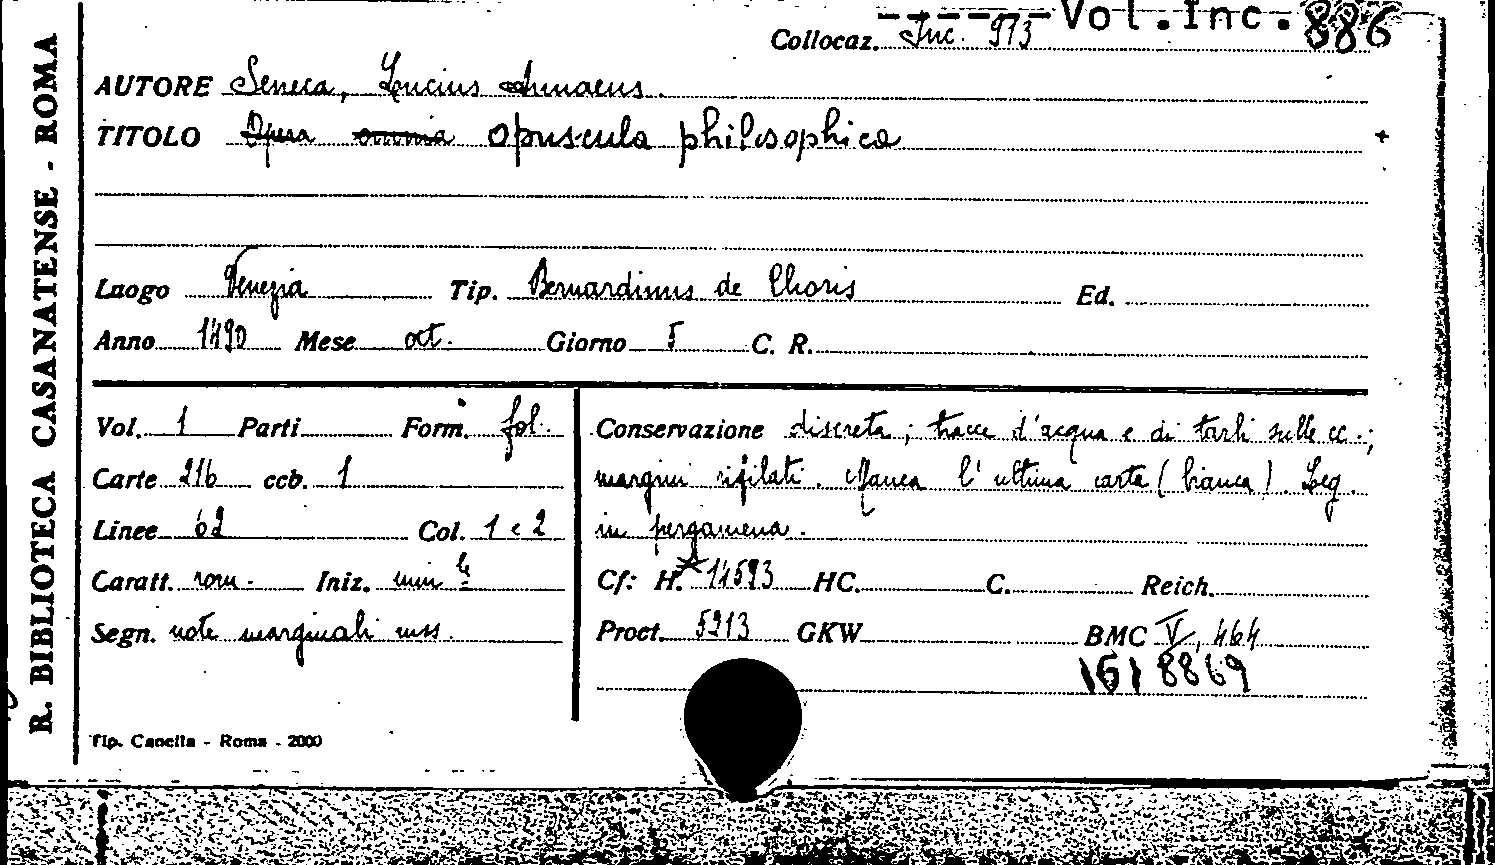 Vol.Inc.886
Collocaz. Inc. 973
AUTORE Seneca, Lucius Annaeus.
TITOLO Opera omnia opuscula philosophica
Luogo Venezia Tip. Bernardinus de Choris Ed.
Anno 1490 Mese oct. Giorno 5 C. R.
Vol. 1 Parti Form. fol.
Carte 216 ccb. 1
Linee 62 Col. 1 e 2
Caratt. rom. Iniz. min.le
Segn. note marginali mss.
Conservazione discreta; tracce d'acqua e di tarli sulle cc.;
margini rifilati. Manca l'ultima carta (bianca). Leg.
in pergamena.
Cf: H.* 14593 HC. C. Reich.
Proct. 5213 GKW BMC V, 464
IGI 8869
Tip. Canella - Roma - 2000
R. BIBLIOTECA CASANATENSE - ROMA